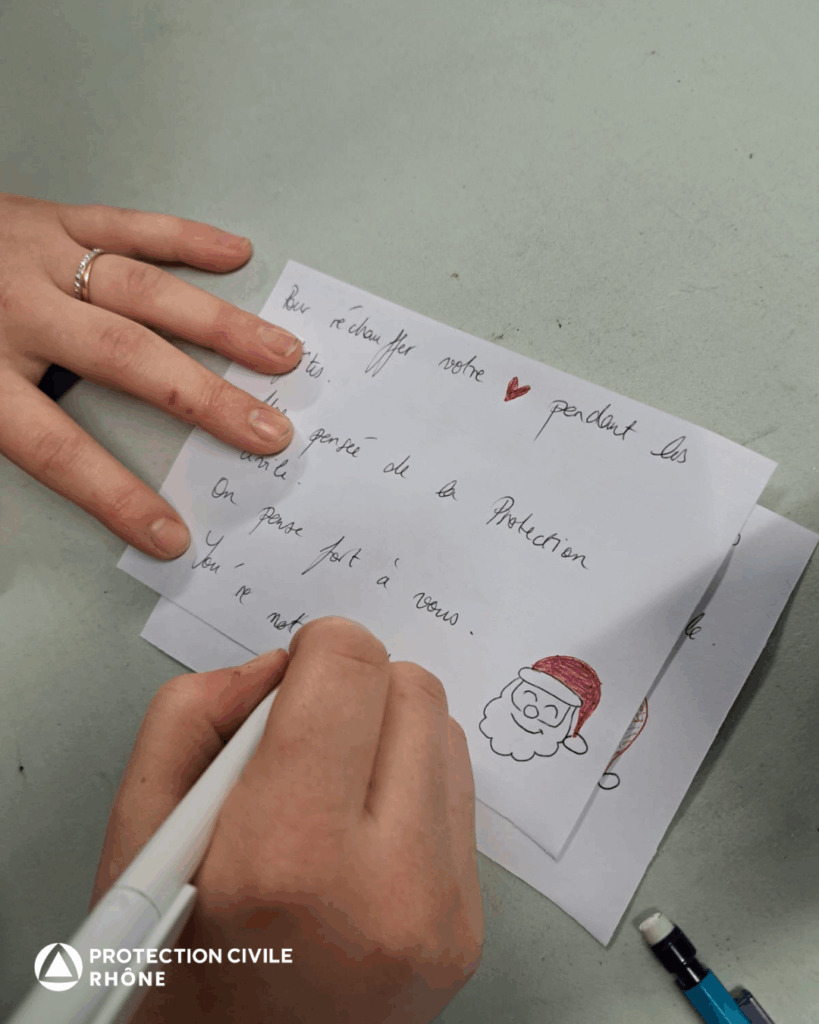 Pour réchauffer votre ❤ pendant les
fêtes.
pensée de la Protection
civile.
On pense fort à vous.
You're not
le.
PROTECTION CIVILE
RHÔNE